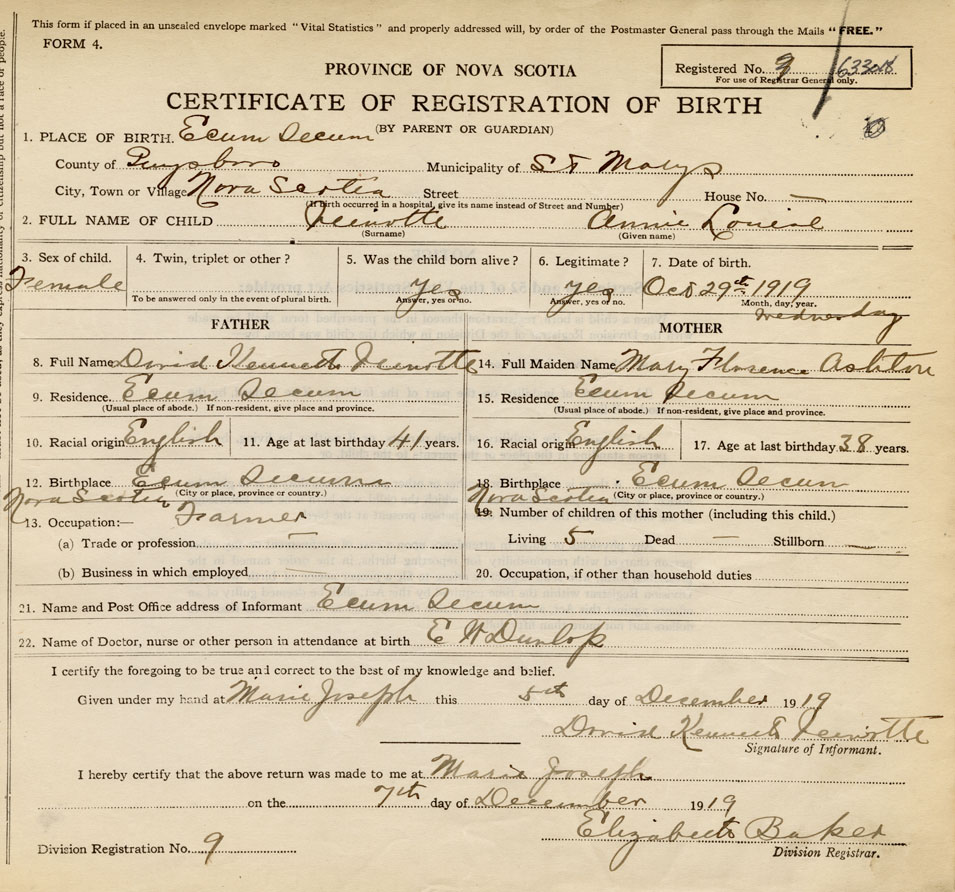 This form if placed in an unsealed envelope marked "Vital Statistics" and properly addressed will, by order of the Postmaster General pass through the Mails "FREE."
FORM 4.
Registered No. 9 63308
For use of Registrar General only.
PROVINCE OF NOVA SCOTIA
CERTIFICATE OF REGISTRATION OF BIRTH
(BY PARENT OR GUARDIAN)
1. PLACE OF BIRTH. Ecum Secum
County of Guysboro Municipality of St Marys
City, Town or Village Nova Scotia Street House No. —
(If birth occurred in a hospital, give its name instead of Street and Number)
2. FULL NAME OF CHILD Annie Louise
(Surname) (Given name)
3. Sex of child. Female
4. Twin, triplet or other?
To be answered only in the event of plural birth.
5. Was the child born alive? Yes
Answer, yes or no.
6. Legitimate? Yes
Answer, yes or no.
7. Date of birth. Oct 29th 1919
Month, day, year.
Wednesday
FATHER
8. Full Name David Kenneth
9. Residence. Ecum Secum
(Usual place of abode.) If non-resident, give place and province.
10. Racial origin English 11. Age at last birthday 41 years.
12. Birthplace Ecum Secum
Nova Scotia (City or place, province or country.)
13. Occupation:— Farmer
(a) Trade or profession —
(b) Business in which employed —
MOTHER
14. Full Maiden Name Mary Florence Ashton
15. Residence Ecum Secum
(Usual place of abode.) If non-resident, give place and province.
16. Racial origin English 17. Age at last birthday 38 years.
18. Birthplace Ecum Secum
Nova Scotia (City or place, province or country.)
19. Number of children of this mother (including this child.)
Living 5 Dead — Stillborn —
20. Occupation, if other than household duties
21. Name and Post Office address of Informant Ecum Secum
22. Name of Doctor, nurse or other person in attendance at birth E W Dunlop
I certify the foregoing to be true and correct to the best of my knowledge and belief.
Given under my hand at Marie Joseph this 5th day of December 1919
David Kenneth
Signature of Informant.
I hereby certify that the above return was made to me at Marie Joseph
on the 7th day of December 1919
Elizabeth Baker
Division Registrar.
Division Registration No. 9